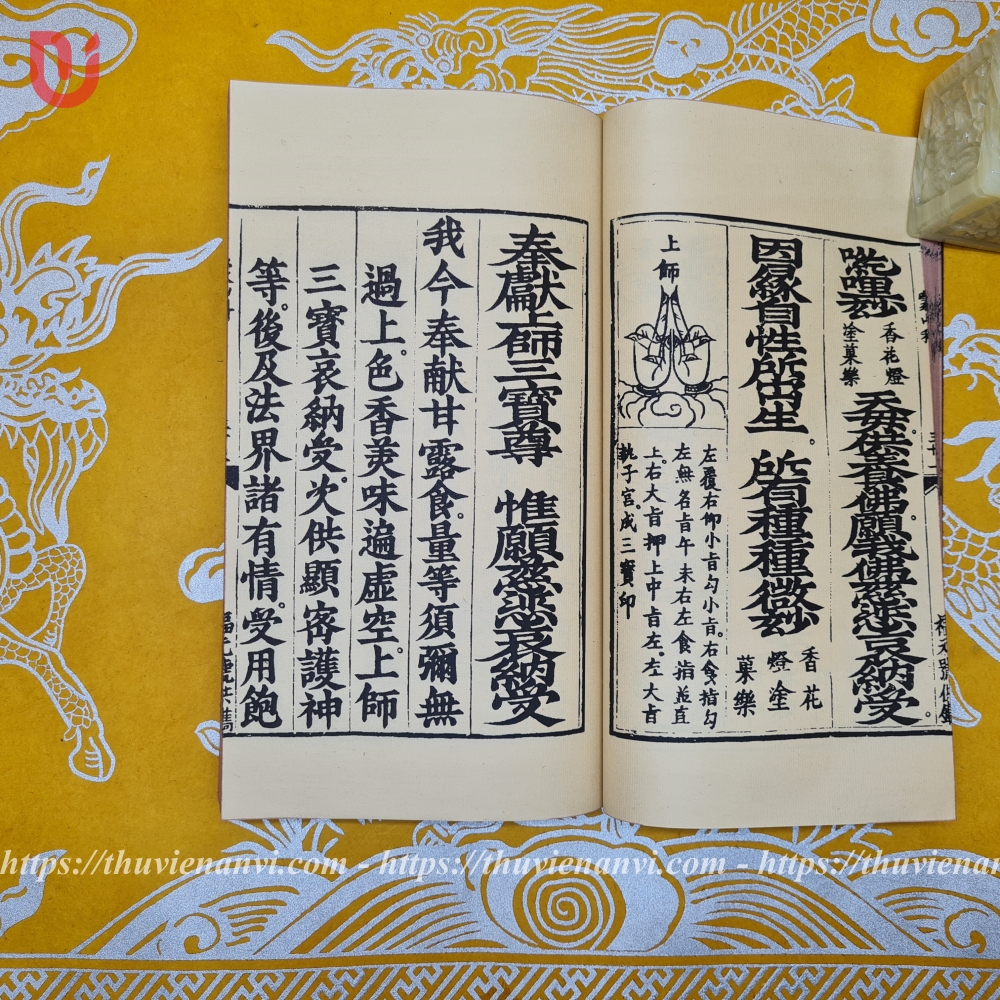 香花燈
塗菓樂
供養佛。願我佛慈悲哀納受。
因緣自性所出生。所有種種微妙
香花
燈塗
菓樂
上師
左覆右仰小旨勾小旨。右食指勾
左無名旨午未右左食指並直
上。右大旨押上中旨左。左大旨
子宮。成三寶印
奉獻上師三寶尊 惟願慈悲哀納受
我今奉献甘露食。量等須彌無
過上。色香美味遍虛空。上師
三寶哀納受。次供顯密護神
等。後及法界諸有情。受用飽
https://thuvienanvi.com - https://thuvienanvi.com - https://thuvienanvi